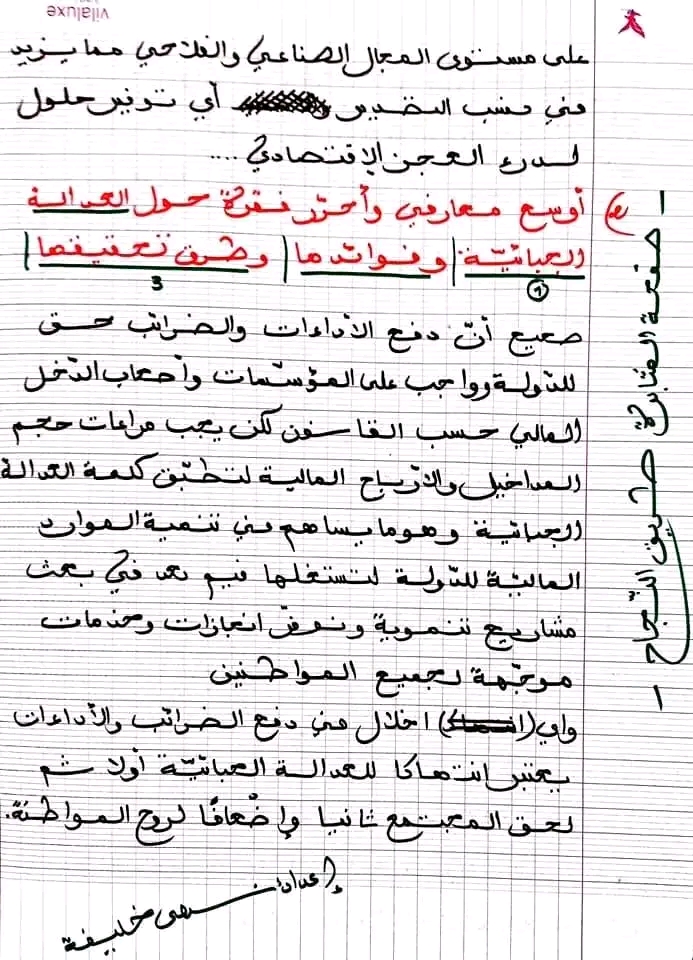 vilaluxe
على مستوى المجال الصناعي والفلاحي مما يزيد
في نسب التصدير أي توفير حلول
لدرء العجز الإقتصادي ....
أوسع معارفي وأحرّر فقرة حول العدالة
الجبائيّة | وفوائدها | وطرق تحقيقها |
1 3
صحيح أنّ دفع الأداءات والضرائب حق
للدّولة وواجب على المؤسّسات وأصحاب الدّخل
المالي حسب القانون لكن يجب مراعات حجم
المداخيل والأرباح المالية لتطبّق كلمة العدالة
الجبائية وهو ما يساهم في تنمية الموارد
الماليّة للدّولة لتستغلها فيم بعد في بعث
مشاريع تنموية وتوفّر انجازات وخدمات
موجّهة لجميع المواطنين
واي (انتهاك) اخلال في دفع الضرائب والأداءات
يعتبر انتهاكا للعدالة الجبائيّة أولا ثم
لحق المجتمع ثانيا وإضعافًا لروح المواطنة.
إعداد: نهى خليفة
- صفحة المثابرة طريق النّجاح -